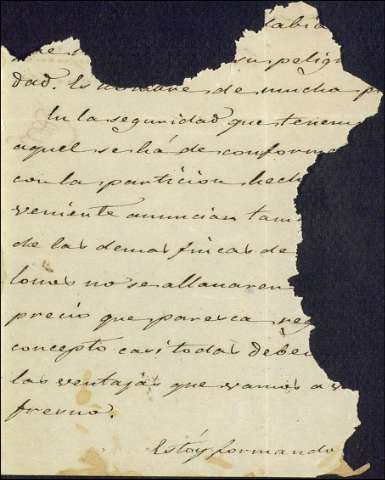 labia
su pelig
dad. Es hombre de mucha p
En la seguridad que tenem
aquel se há de conforma
con la particion hech
veniente anuncian tam
de las demas fincas de
lomas no se allanaren
precio que paresca reg
concepto casi todas deben
las ventajas que vamos a
fresno.
Estoy formando